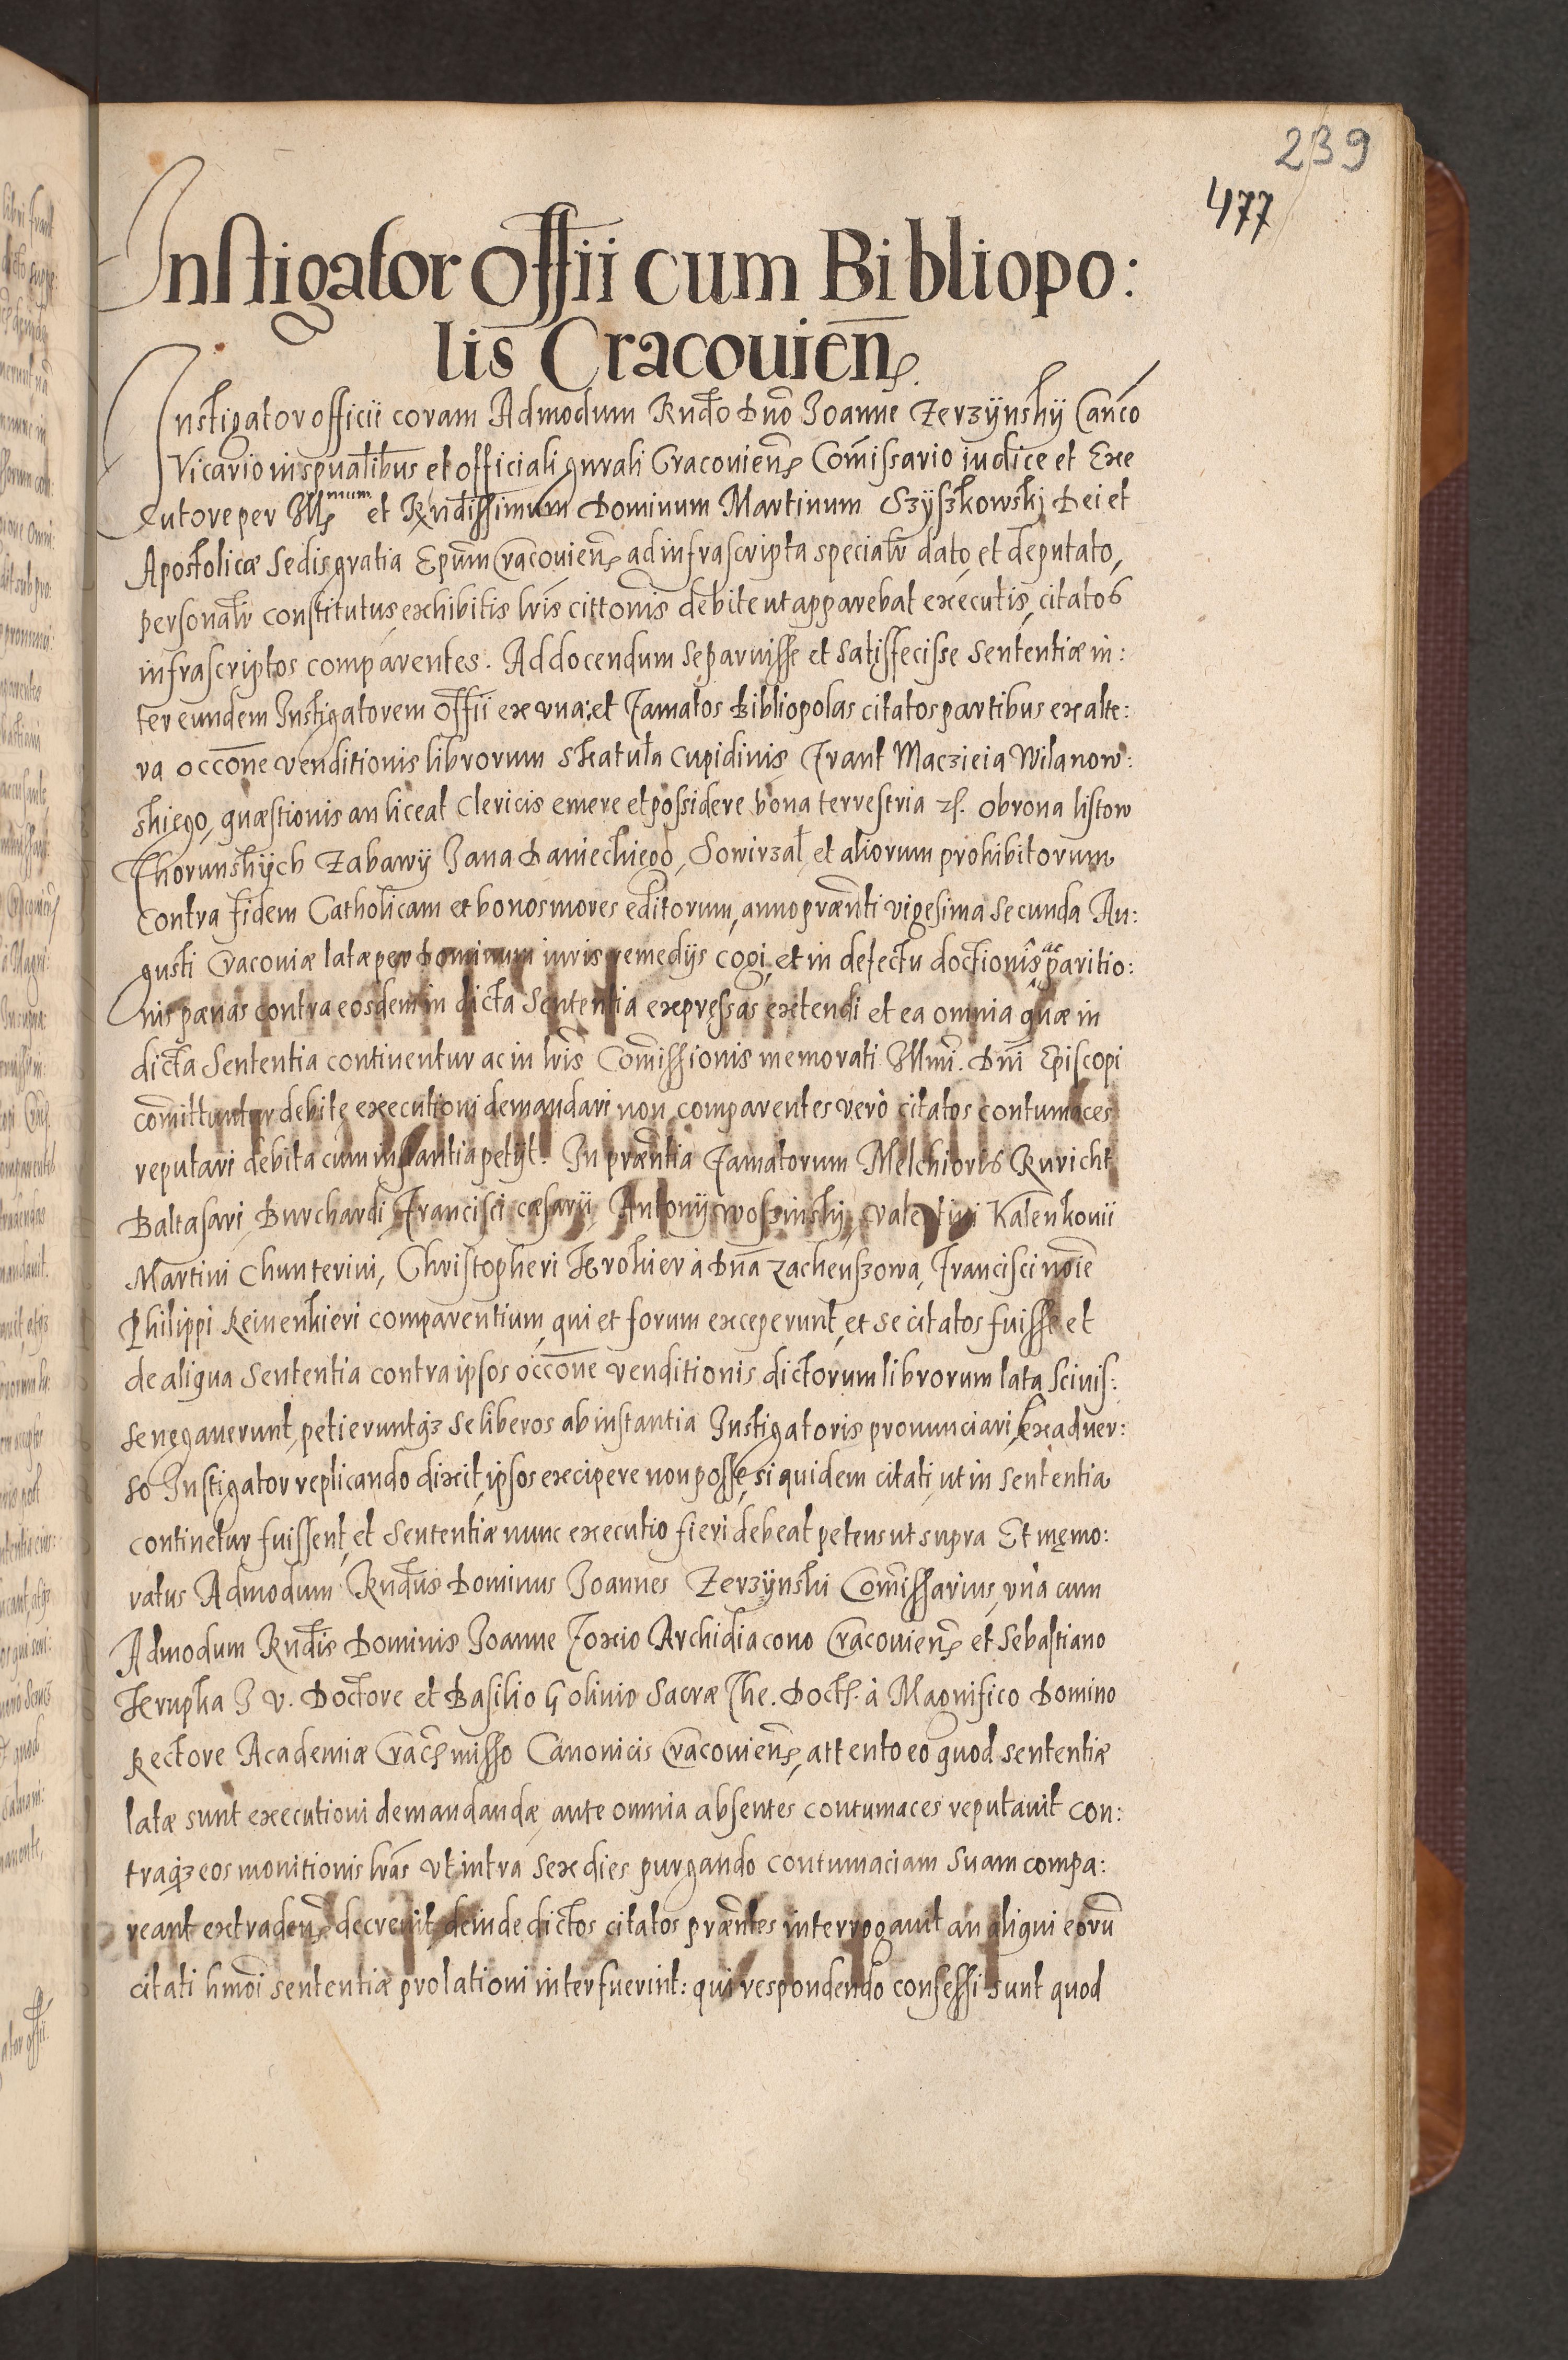 239
477
Instigator Offii cum Bibliopo:
lis Cracouien.
Instigator officii coram Admodum Rndo Dno Joanne Zerzÿnskÿ Canco
Vicario in spualibus et officiali gnrali Cracovien Comissario iudice et Exe
cutore per Illmum et Rndissimum Dominum Martinum Szÿszkowskj Dei et
Apostolicæ Sedis gratia Epum Cracovien ad infrascripta specialr dato, et deputato,
personalr constitutus, exhibitis lris cittonis debite ut apparebat executis, citatos
infrascriptos comparentes. Ad docendum se paruisse et satisfecisse Sententiæ in:
ter eundem Instigatorem Offii ex una, et Famatos Bibliopolas citatos partibus ex alte:
ra occone venditionis librorum Skatula Cupidinis Frant Maczieia Wilanow:
skiego, quæstionis an liceat Clericis emere et possidere bona terrestria et. Obrona listow
Thorunskÿch Zabawÿ Jana Daniechiego, Sowirzal, et aliorum prohibitorum
contra fidem Catholicam et bonos mores editorum, anno prænti vigesima secunda Au:
gusti Cracoviæ latæ per Dominum iuris remedÿs cogi, et in defectu doctionis ac paritio:
nis pænas contra eosdem in dicta Sententia expressas extendi et ea omnia quæ in
dicta Sententia continentur ac in lris Comissionis memorati Illmi. Dni Episcopi
comittuntur debite executioni demandari non comparentes verò citatos contumaces
reputari debita cum instantia petÿt. In præntia Famatorum Melchioris Rnricht
Baltasari Burchardi, Francisci Cæsarii, Antonÿ Woszinskÿ, Valentini Kalenkovii
Martini Chunterini, Christopheri Krokier à Dna Zachenszowa, Francisci noie
Philippi Reinenkieri comparentium, qui et forum exceperunt, et se citatos fuisse et
de aliqua Sententia contra ipsos occone venditionis dictorum librorum lata scivis:
se negaverunt, petieruntq3 se liberos ab instantia Instigatoris pronunciari, Ex adver:
so Instigator replicando dixit, ipsos excipere non posse, si quidem citati, ut in sententia
continetur fuissent, et Sententiæ nunc executio fieri debeat petens ut supra Et memo:
ratus Admodum Rndus Dominus Joannes Zerzÿnski Comissarius, unà cum
Admodum Rndis Dominis Joanne Foxio Archidiacono Cracovien et Sebastiano
Krupka J V. Doctore et Basilio Golinio Sacræ The. Doct. à Magnifico Domino
Rectore Academiæ Crac misso Canonicis Cracovien, attento eo quod sententiæ
latæ sunt executioni demandandæ, ante omnia absentes contumaces reputavit con:
traq3 eos monitionis lras ut intra sex dies purgando contumaciam suam compa:
reant extraden decrevit, deinde dictos citatos præntes interrogavit an aliqui eoru
citati hmoi sententiæ prolationi interfuerint: qui respondendo confessi sunt quod